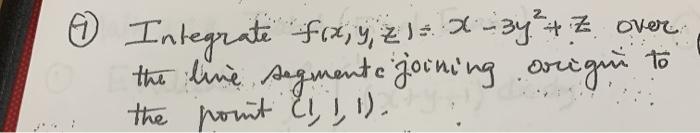 ⑦ Integrate f(x, y, z) = x - 3y² + z over
the line segment joining origin to
the point (1, 1, 1).